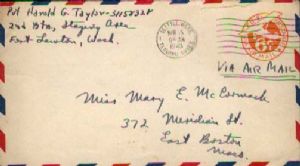 Pvt Harold G. Taylor
2nd Btn, Staging Area
Fort Lawton, Wash.
SEATTLE, WASH.
1943
VIA AIR MAIL
Miss Mary E. McCormack
372 Meridian St.
East Boston
Mass.